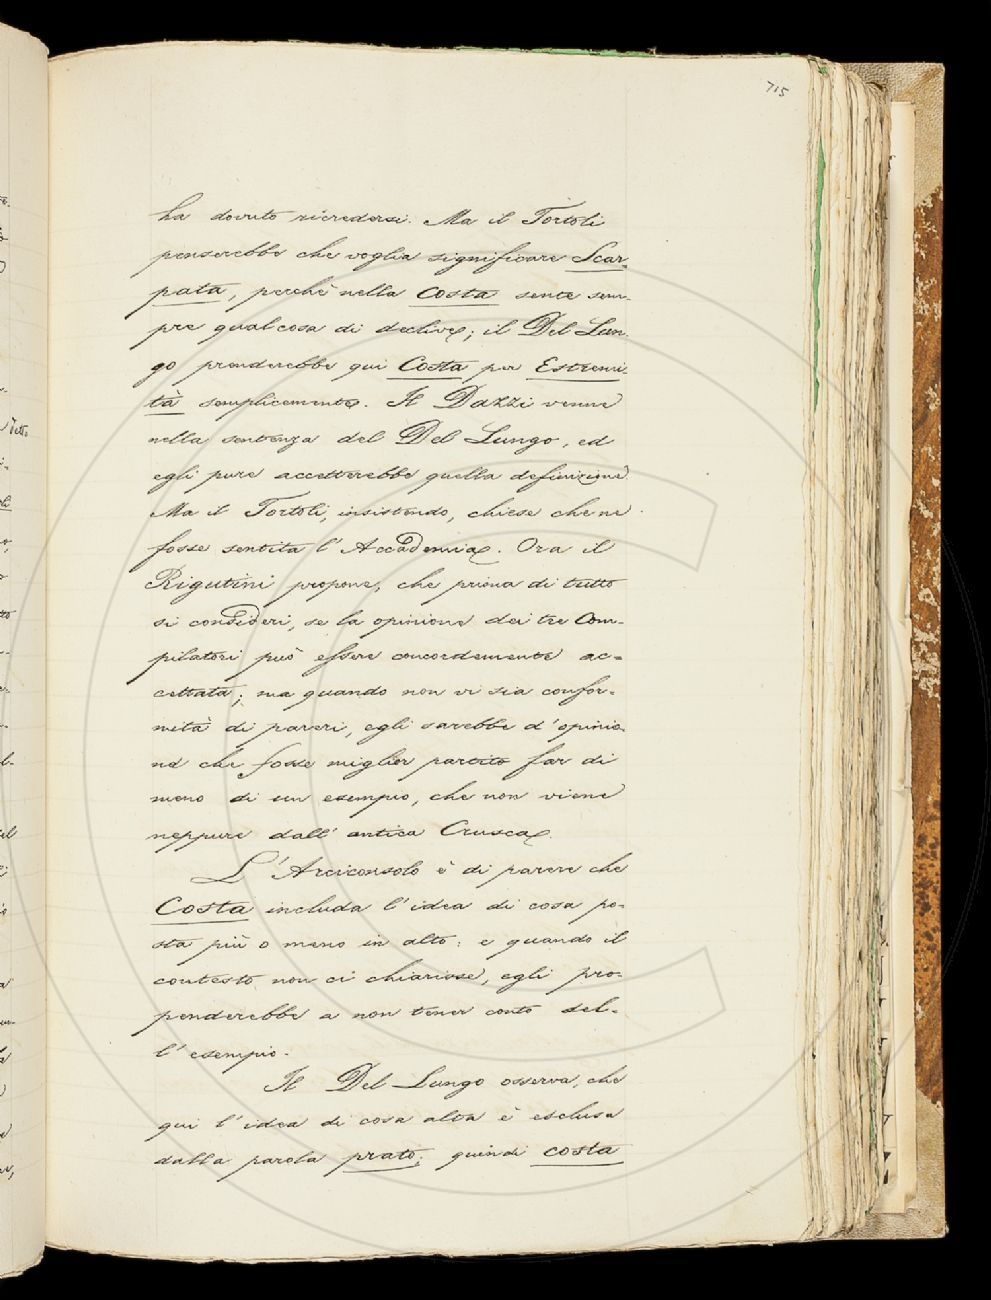 715
ha dovuto ricredersi. Ma il Tortoli
penserebbe che voglia significare Scar-
pata, perchè nella Costa sente sem-
pre qualcosa di declive; il Del Lun-
go prenderebbe qui Costa per Estremi-
tà semplicemente. Il Dazzi venne
nella sentenza del Del Lungo, ed
egli pure accetterebbe quella definizione.
Ma il Tortoli, insistendo, chiese che ne
fosse sentita l'Accademia. Ora il
Rigutini propone, che prima di tutto
si consideri, se la opinione dei tre Com-
pilatori può essere concordemente ac-
cettata; ma quando non vi sia confor-
mità di pareri, egli sarebbe d'opinio-
ne che fosse miglior partito far di
meno di un esempio, che non viene
neppure dall'antica Crusca.
L'Arciconsolo è di parere che
Costa includa l'idea di cosa po-
sta più o meno in alto: e quando il
contesto non ci chiarisse, egli pro-
penderebbe a non tener conto del-
l'esempio.
Il Del Lungo osserva, che
qui l'idea di cosa alta è esclusa
dalla parola prato; quindi costa